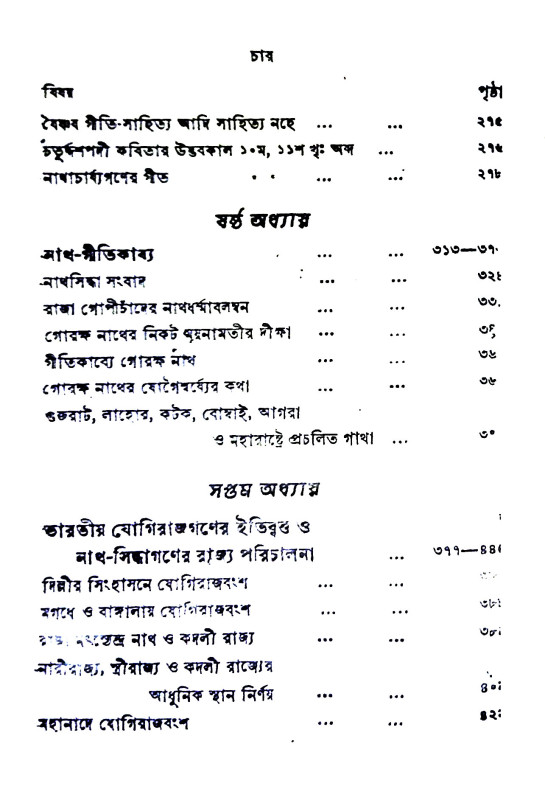 চার
বিষয় পৃষ্ঠা
বৈষ্ণব গীতি-সাহিত্য আদি সাহিত্য নহে ... ... ২৭৫
চতুর্দ্দশপদী কবিতার উদ্ভবকাল ১০ম, ১১শ খৃঃ অব্দ ... ২৭৬
নাথাচার্য্যগণের গীত ... ... ২৭৮
ষষ্ঠ অধ্যায়
নাথ-গীতিকাব্য ... ... ৩১৩—৩৭
নাথসিদ্ধা সংবাদ ... ... ৩২৪
রাজা গোপীচাঁদের নাথধর্ম্মাবলম্বন ... ... ৩৩
গোরক্ষ নাথের নিকট ময়নামতীর দীক্ষা ... ...
গীতিকাব্যে গোরক্ষ নাথ ... ... ৩৬
গোরক্ষ নাথের যোগৈশ্বর্য্যের কথা ... ... ৩৬
গুজরাট, লাহোর, কটক, বোম্বাই, আগরা
ও মহারাষ্ট্রে প্রচলিত গাথা ...
সপ্তম অধ্যায়
ভারতীয় যোগিরাজগণের ইতিবৃত্ত ও
নাথ-সিদ্ধাগণের রাজ্য পরিচালনা ... ৩৭৭—৪৪
দিল্লীর সিংহাসনে যোগিরাজবংশ ... ...
মগধে ও বাঙ্গালায় যোগিরাজবংশ ... ... ৩৮
রাজা মৎস্যেন্দ্র নাথ ও কদলী রাজ্য ... ... ৩৮
নারীরাজ্য, স্ত্রীরাজ্য ও কদলী রাজ্যের
আধুনিক স্থান নির্ণয় ... ... ৪০
মহানাদে যোগিরাজবংশ ... ... ৪২